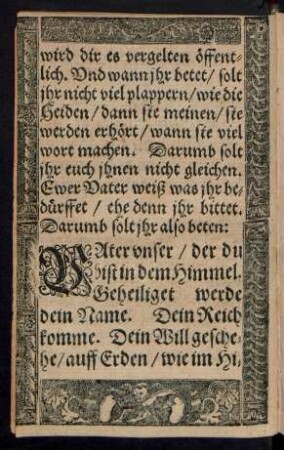 wird dir es vergelten öffent-
lich. Vnd wann jhr betet / solt
jhr nicht viel plappern / wie die
Heiden / dann sie meinen / sie
werden erhört / wann sie viel
wort machen. Darumb solt
jhr euch jhnen nicht gleichen.
Ewer Vater weiß was jhr be-
dürffet / ehe denn jhr bittet.
Darumb solt jhr also beten:
VAter vnser / der du
bist in dem Himmel.
Geheiliget werde
dein Name. Dein Reich
komme. Dein Will gesche-
he / auff Erden / wie im Hi-